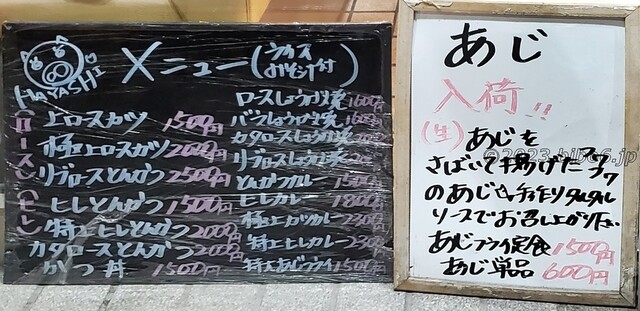 HAYASHI
メニュー(ライス おみそ汁付)
ロース
上ロースカツ 1500円
極上ロースカツ 2000円
リブロースとんかつ 2500円
ヒレ
ヒレとんかつ 1500円
特上ヒレとんかつ 2000円
カタロースとんかつ 2000円
かつ丼 1500円
ロースしょうが焼 1600円
バラしょうが焼 1600円
カタロースしょうが焼
リブロースしょうが焼
とんかつカレー
ヒレカレー 1800円
極上カツカレー 2300円
特上ヒレカレー 2300
特大あじフライ 1500円
あじ
入荷!!
(生)あじを
さばいて揚げたフワフワ
のあじに手作りタルタル
ソースでお召し上がり下さい
あじフライ定食 1500円
あじ単品 600円
©2023 bib66.jp